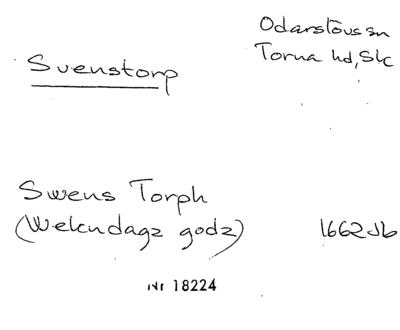 Svenstorp
Odarslövs sn
Torna hd, Sk
Swens Torph
(Wekndagz godz)
1662 Jb
Nr 18224